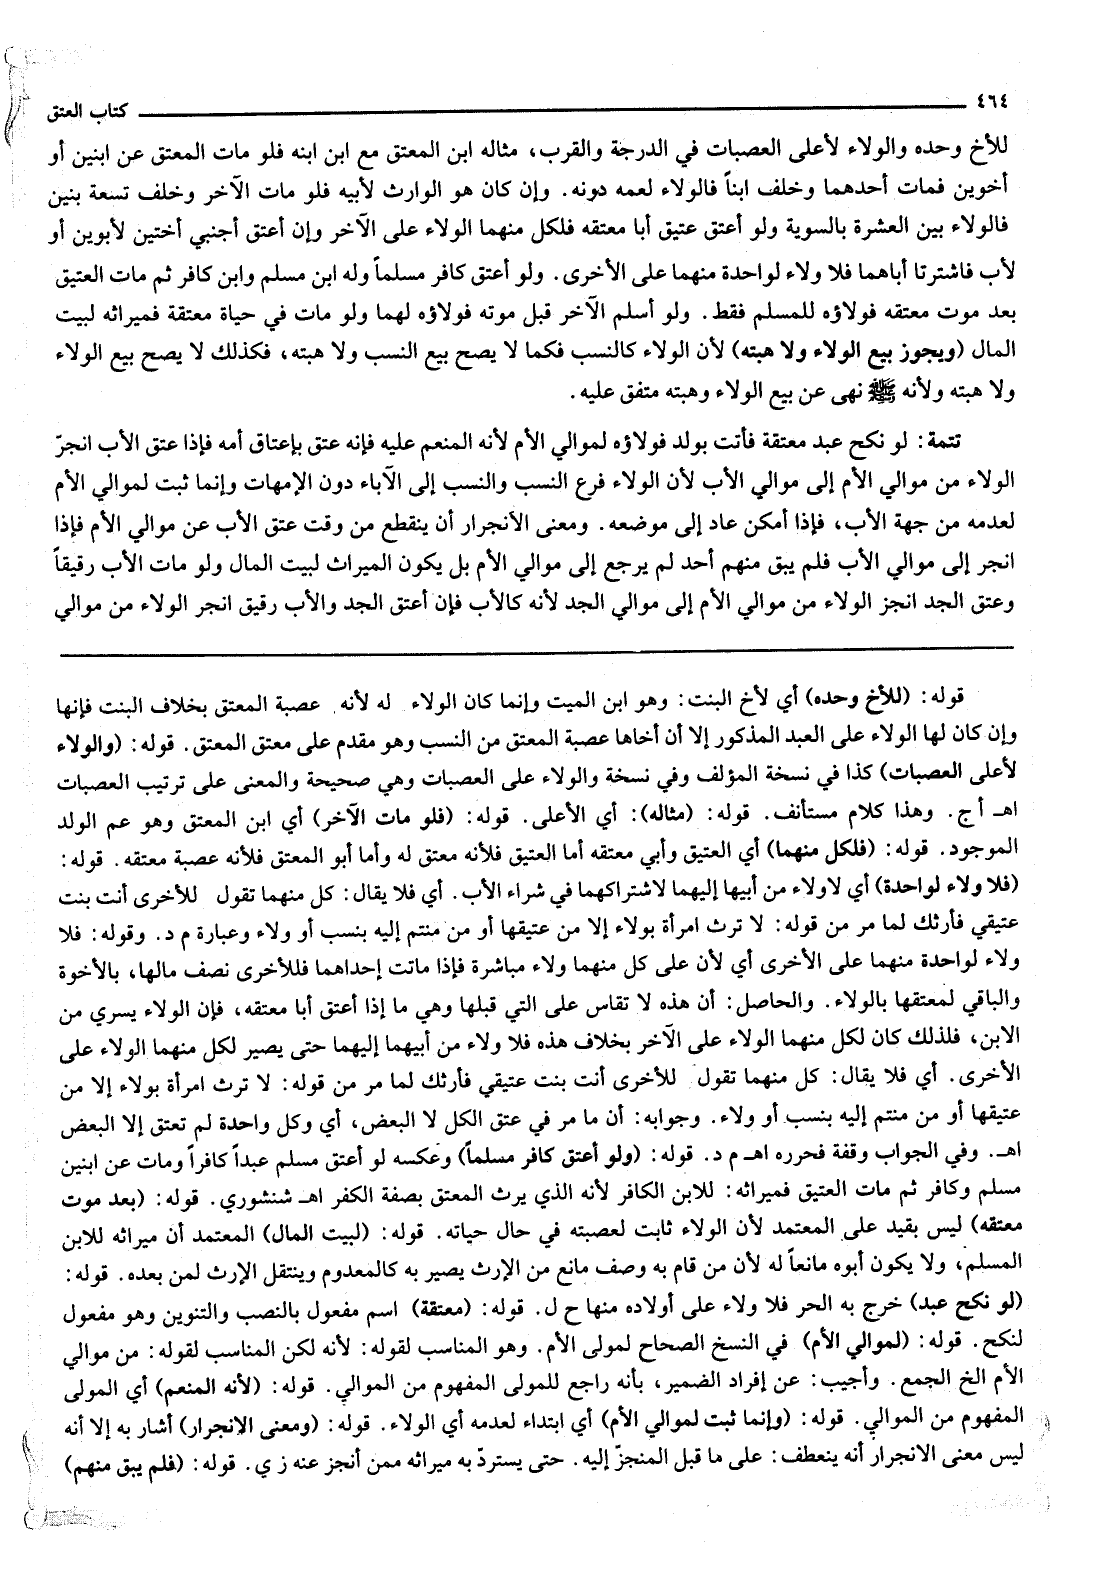 ٤٦٤ كتاب العتق
للأخ وحده والولاء لأعلى العصبات في الدرجة والقرب، مثاله ابن المعتق مع ابن ابنه فلو مات المعتق عن ابنين أو
أخوين فمات أحدهما وخلف ابناً فالولاء لعمه دونه. وإن كان هو الوارث لأبيه فلو مات الآخر وخلف تسعة بنين
فالولاء بين العشرة بالسوية ولو أعتق عتيق أبا معتقه فلكل منهما الولاء على الآخر وإن أعتق أجنبي أختين لأبوين أو
لأب فاشترتا أباهما فلا ولاء لواحدة منهما على الأخرى. ولو أعتق كافر مسلماً وله ابن مسلم وابن كافر ثم مات العتيق
بعد موت معتقه فولاؤه للمسلم فقط. ولو أسلم الآخر قبل موته فولاؤه لهما ولو مات في حياة معتقة فميراثه لبيت
المال (ويجوز بيع الولاء ولا هبته) لأن الولاء كالنسب فكما لا يصح بيع النسب ولا هبته، فكذلك لا يصح بيع الولاء
ولا هبته ولأنه ﷺ نهى عن بيع الولاء وهبته متفق عليه.
تتمة: لو نكح عبد معتقة فأتت بولد فولاؤه لموالي الأم لأنه المنعم عليه فإنه عتق بإعتاق أمه فإذا عتق الأب انجرّ
الولاء من موالي الأم إلى موالي الأب لأن الولاء فرع النسب والنسب إلى الآباء دون الإمهات وإنما ثبت لموالي الأم
لعدمه من جهة الأب، فإذا أمكن عاد إلى موضعه. ومعنى الأنجرار أن ينقطع من وقت عتق الأب عن موالي الأم فإذا
انجر إلى موالي الأب فلم يبق منهم أحد لم يرجع إلى موالي الأم بل يكون الميراث لبيت المال ولو مات الأب رقيقاً
وعتق الجد انجز الولاء من موالي الأم إلى موالي الجد لأنه كالأب فإن أعتق الجد والأب رقيق انجر الولاء من موالي
قوله: (للأخ وحده) أي لأخ البنت: وهو ابن الميت وإنما كان الولاء له لأنه عصبة المعتق بخلاف البنت فإنها
وإن كان لها الولاء على العبد المذكور إلا أن أخاها عصبة المعتق من النسب وهو مقدم على معتق المعتق. قوله: (والولاء
لأعلى العصبات) كذا في نسخة المؤلف وفي نسخة والولاء على العصبات وهي صحيحة والمعنى على ترتيب العصبات
اهـ أ ج. وهذا كلام مستأنف. قوله: (مثاله): أي الأعلى. قوله: (فلو مات الآخر) أي ابن المعتق وهو عم الولد
الموجود. قوله: (فلكل منهما) أي العتيق وأبي معتقه أما العتيق فلأنه معتق له وأما أبو المعتق فلأنه عصبة معتقه. قوله:
(فلا ولاء لواحدة) أي لاولاء من أبيها إليهما لاشتراكهما في شراء الأب. أي فلا يقال: كل منهما تقول للأخرى أنت بنت
عتيقي فأرثك لما مر من قوله: لا ترث امرأة بولاء إلا من عتيقها أو من منتم إليه بنسب أو ولاء وعبارة م د. وقوله: فلا
ولاء لواحدة منهما على الأخرى أي لأن على كل منهما ولاء مباشرة فإذا ماتت إحداهما فللأخرى نصف مالها، بالأخوة
والباقي لمعتقها بالولاء. والحاصل: أن هذه لا تقاس على التي قبلها وهي ما إذا أعتق أبا معتقه، فإن الولاء يسري من
الابن، فلذلك كان لكل منهما الولاء على الآخر بخلاف هذه فلا ولاء من أبيهما إليهما حتى يصير لكل منهما الولاء على
الأخرى. أي فلا يقال: كل منهما تقول للأخرى أنت بنت عتيقي فأرثك لما مر من قوله: لا ترث امرأة بولاء إلا من
عتيقها أو من منتم إليه بنسب أو ولاء. وجوابه: أن ما مر في عتق الكل لا البعض، أي وكل واحدة لم تعتق إلا البعض
اهـ. وفي الجواب وقفة فحرره اهـ م د. قوله: (ولو أعتق كافر مسلماً) وعكسه لو أعتق مسلم عبداً كافراً ومات عن ابنين
مسلم وكافر ثم مات العتيق فميراثه: للابن الكافر لأنه الذي يرث المعتق بصفة الكفر اهـ شنشوري. قوله: (بعد موت
معتقه) ليس بقيد على المعتمد لأن الولاء ثابت لعصبته في حال حياته. قوله: (لبيت المال) المعتمد أن ميراثه للابن
المسلم، ولا يكون أبوه مانعاً له لأن من قام به وصف مانع من الإرث يصير به كالمعدوم وينتقل الإرث لمن بعده. قوله:
(لو نكح عبد) خرج به الحر فلا ولاء على أولاده منها ح ل. قوله: (معتقة) اسم مفعول بالنصب والتنوين وهو مفعول
لنكح. قوله: (لموالي الأم) في النسخ الصحاح لمولى الأم. وهو المناسب لقوله: لأنه لكن المناسب لقوله: من موالي
الأم الخ الجمع. وأجيب: عن إفراد الضمير، بأنه راجع للمولى المفهوم من الموالي. قوله: (لأنه المنعم) أي المولى
المفهوم من الموالي. قوله: (وإنما ثبت لموالي الأم) أي ابتداء لعدمه أي الولاء. قوله: (ومعنى الانجرار) أشار به إلا أنه
ليس معنى الانجرار أنه ينعطف: على ما قبل المنجزّ إليه. حتى يستردّ به ميراثه ممن أنجز عنه ز ي. قوله: (فلم يبق منهم)